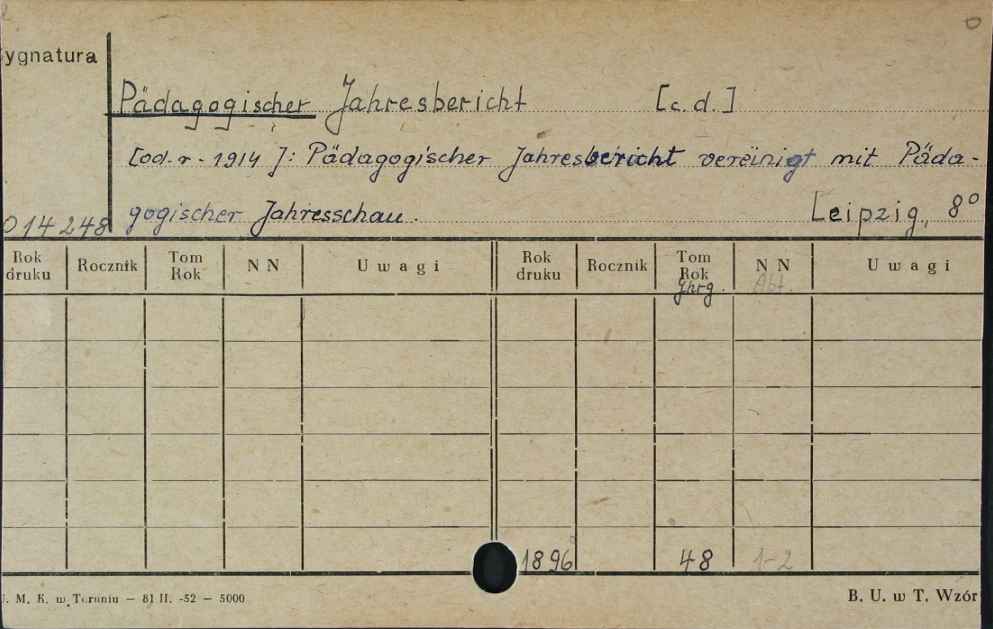 ygnatura
Pädagogischer Jahresbericht [c.d.]
[od. r. 1914]: Pädagogischer Jahresbericht vereinigt mit Päda-
014248 gogischer Jahresschau. Leipzig, 8⁰
Rok druku Rocznik Tom Rok N N Uwagi Rok druku Rocznik Tom Rok N N Uwagi
Jhrg. Abt.
1896 48 1-2
. M. K. w Toruniu — 81 II. -52 — 5000 B. U. w T. Wzór